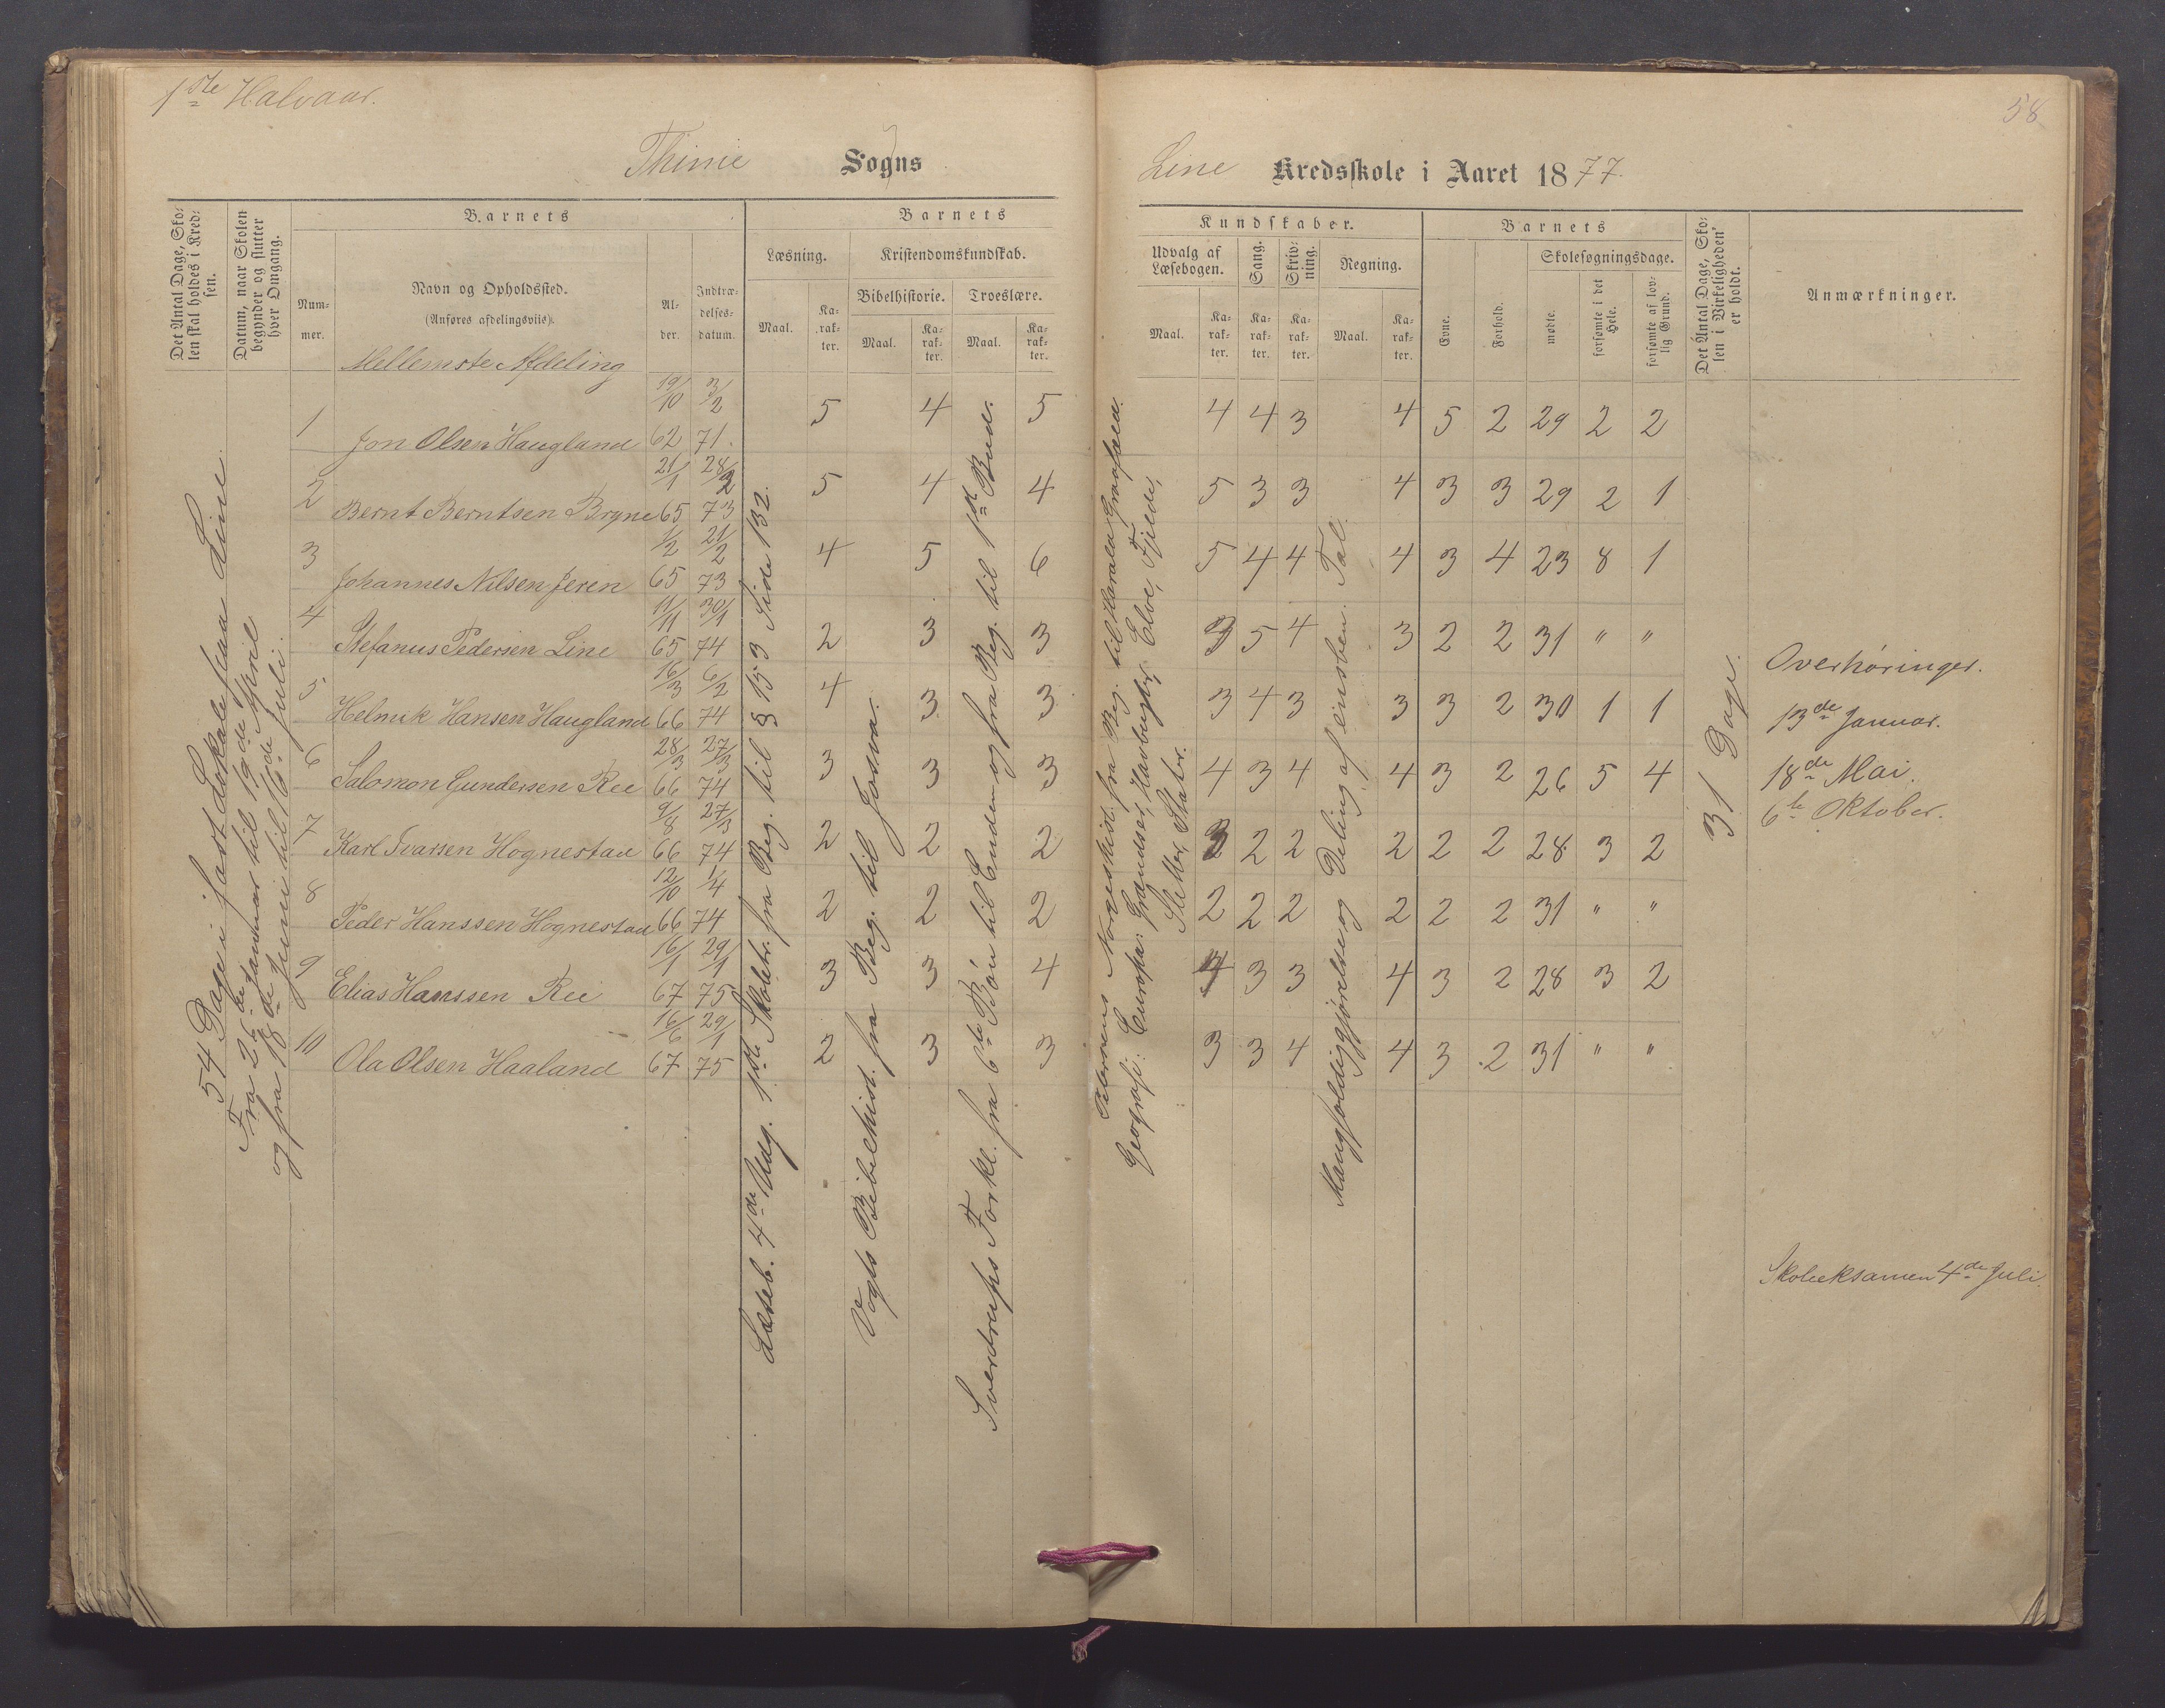 1ste Halvaar.
58
Thime Sogns
Line Kredsskole i Aaret 1877.
Det Antal Dage, Skolen skal holdes i Kredsen.
Datum, naar Skolen begynder og slutter hver Omgang.
Barnets
Nummer.
Navn og Opholdssted.
(Anføres afdelingsviis).
Alder.
Indtrædelsesdatum.
Barnets
Læsning.
Kristendomskundskab.
Bibelhistorie.
Troeslære.
Maal.
Karakter.
Maal.
Karakter.
Maal.
Karakter.
Kundskaber.
Udvalg af Læsebogen.
Sang.
Skrivning.
Regning.
Maal.
Karakter.
Karakter.
Karakter.
Maal.
Karakter.
Barnets
Evne.
Forhold.
Skolesøgningsdage.
mødte.
forsømte i det Hele.
forsømte af lovlig Grund.
Det Antal Dage, Skolen i Virkeligheden er holdt.
Anmærkninger.
Mellemste Afdeling
1 Jon Olsen Haugland 19/10 62 3/2 71. 5 4 5 4 4 3 4 5 2 29 2 2
2 Bernt Berntsen Bryne 21/1 65 28/2 73 5 4 4 5 3 3 4 3 3 29 2 1
3 Johannes Nilsen Jeren 1/2 65 21/2 73 4 5 6 5 4 4 4 3 4 23 8 1
4 Stefanus Pedersen Line 11/11 65 30/1 74 2 3 3 3 5 4 3 2 2 31 " "
5 Helmik Hansen Haugland 16/3 66 6/2 74 4 3 3 3 4 3 3 3 2 30 1 1
6 Salomon Gundersen Ree 28/3 66 27/3 74 3 3 3 4 3 4 4 3 2 26 5 4
7 Karl Ivarsen Hognestad 9/8 66 27/3 74 2 2 2 3 2 2 2 2 2 28 3 2
8 Peder Hanssen Hognestad 12/10 66 1/4 74 2 2 2 2 2 2 2 2 2 31 " "
9 Elias Hanssen Ree 16/1 67 29/1 75 3 3 4 4 3 3 4 3 2 28 3 2
10 Ola Olsen Haaland 16/6 67 29/1 75 2 3 3 3 3 4 4 3 2 31 " "
54 Dage i fast Lokale paa Line.
Fra 26de Januar til 19de April
og fra 18de Juni til 16de Juli.
Læseb. 4de Udg. 1ste Skoletr. fra Beg. til § 153 Side 132.
Vogts Bibelhist. fra Beg. til Josva.
Sverdrups Forkl. fra 6te Bøn til Enden og fra Beg. til 1ste Bud.
Petersens Norgeshist. fra Beg. til Harald Graafeld.
Geografi: Europa: Grændser, Havbugter, Elve, Fjelde,
Sletter, Stater.
Mangfoldiggjørelse og Deling af eensben. Tal.
31 Dage.
Overhøringer.
13de Januar.
18de Mai.
6te Oktober.
Skoleeksamen 4de Juli.